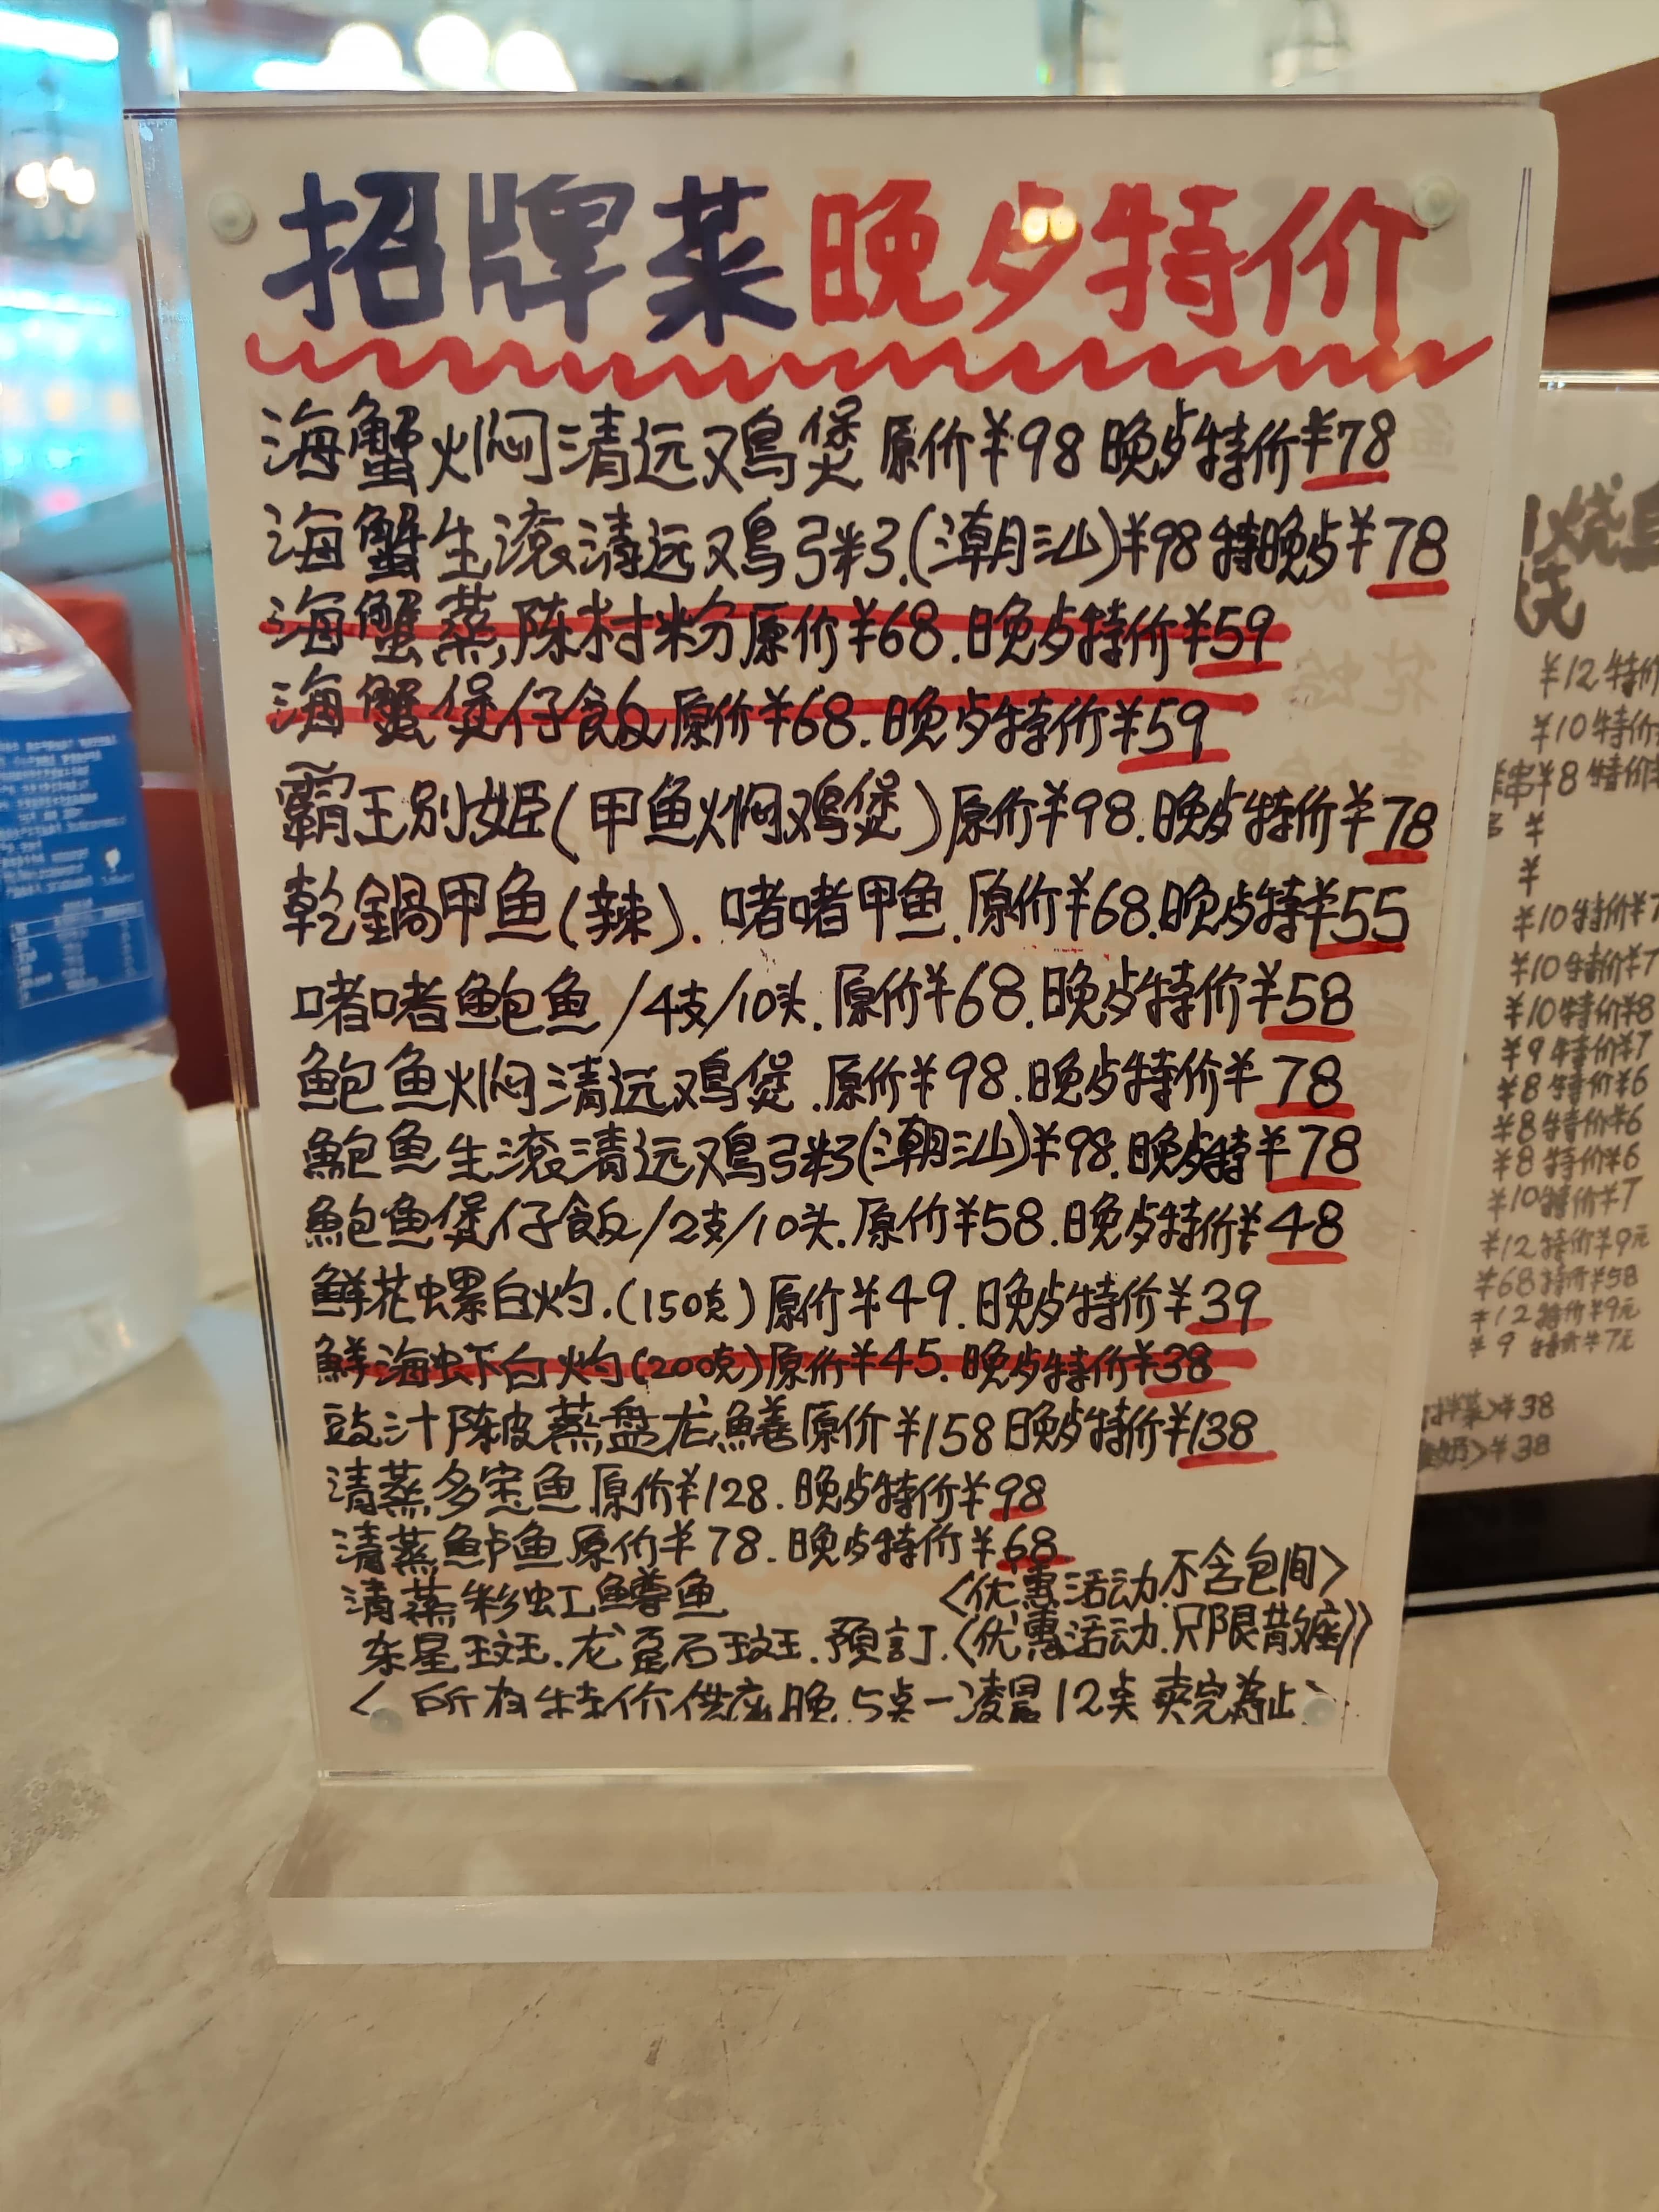 招牌菜晚歺特价
海蟹焖清远鸡煲原价¥98晚歺特价¥78
海蟹生滚清远鸡粥(潮汕)¥98特晚歺¥78
海蟹蒸陈村粉原价¥68.晚歺特价¥59
海蟹煲仔飯原价¥68.晚歺特价¥59
霸王别姬(甲鱼焖鸡煲)原价¥98.晚歺特价¥78
乾鍋甲鱼(辣).啫啫甲鱼.原价¥68.晚歺特¥55
啫啫鮑鱼/4支/10头.原价¥68.晚歺特价¥58
鮑鱼焖清远鸡煲.原价¥98.晚歺特价¥78
鮑鱼生滚清远鸡粥(潮汕)¥98.晚歺特¥78
鮑鱼煲仔飯/2支/10头.原价¥58.晚歺特价¥48
鲜花螺白灼.(150克)原价¥49.晚歺特价¥39
鲜海虾白灼(200克)原价¥45.晚歺特价¥38
豉汁陈皮蒸盘龙鱔原价¥158晚歺特价¥138
清蒸多宝鱼原价¥128.晚歺特价¥98
清蒸鲈鱼原价¥78.晚歺特价¥68
清蒸彩虹鱒鱼
<优惠活动.不含包间>
东星斑.龙趸石斑.預訂.<优惠活动.只限散座>
<所有特价供应晚5点一凌晨12点 卖完為止>
¥12特价
¥10特价
串¥8特价¥
¥
¥
¥10特价¥7
¥10特价¥7
¥10特价¥8
¥9特价¥7
¥8特价¥6
¥8特价¥6
¥8特价¥6
¥10特价¥7
¥12特价¥9元
¥68特价¥58
¥12特价¥9元
¥9特价¥7元
¥38
¥38